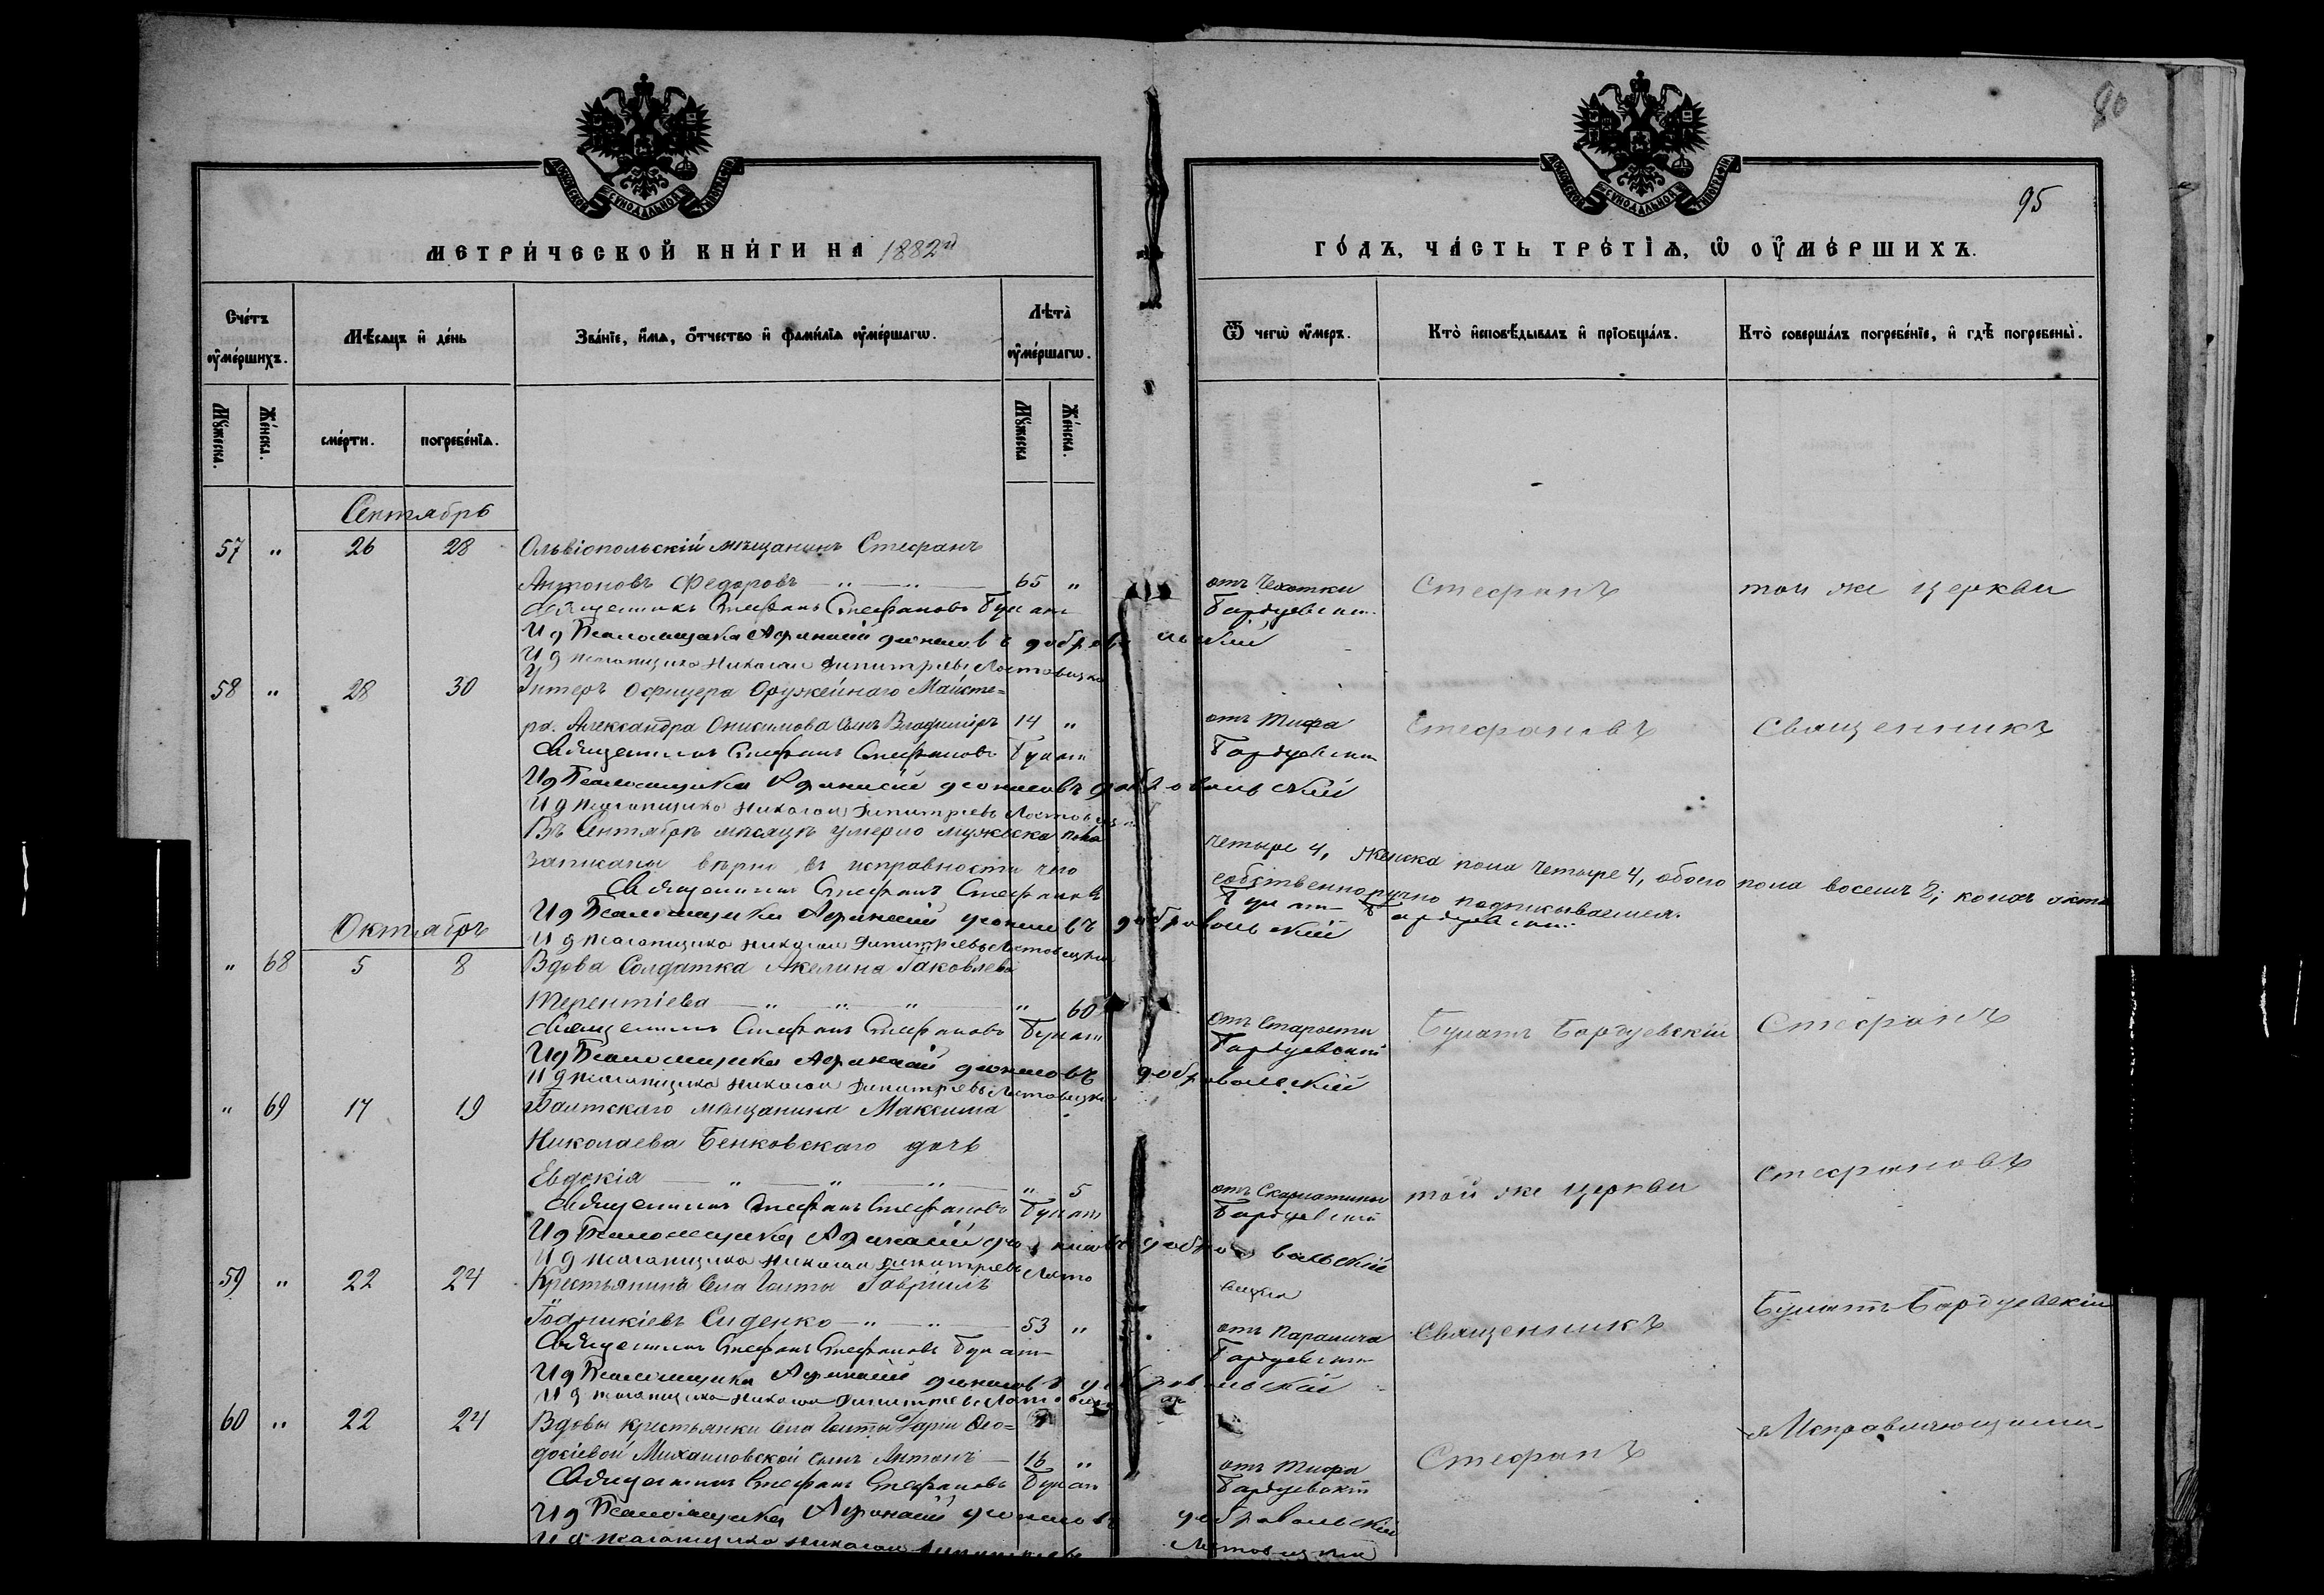 90
95
МОСКОВСКОЙ СѴНОДАЛЬНОЙ ТИПОГРАФІИ
МОСКОВСКОЙ СѴНОДАЛЬНОЙ ТИПОГРАФІИ
МЕТРИ́ЧЕСКОЙ КНИ́ГИ НА 1882й
ГО́ДЪ, ЧА́СТЬ ТРЕ́ТІѦ, Ѡ ОУ҆МЕ́РШИХЪ.
Сче́тъ оу҆ме́ршихъ.
Мѣ́сѧцъ и҆ де́нь
Зва́нїе, и҆́мѧ, о҆́тчество и҆ фамѝлїѧ оу҆ме́ршагѡ.
Лѣ́та̀ оу҆ме́ршагѡ.
Ѿ чегѡ̀ оу҆́меръ.
Кто̀ и҆сповѣ́дывалъ и҆ прїобща́лъ.
Кто̀ соверша́лъ погребе́нїе, и҆ гдѣ̀ погребены̀.
Мꙋ́жеска.
Же́нска.
сме́рти.
погребе́нїѧ.
Мꙋ́жеска
Же́нска.
Сентябрь
57 " 26 28 Ольвіопольскій мѣщанинъ Стефанъ
Антоновъ Федоровъ — " — " — 65 " отъ Чахотки Стефанъ той же церкви
Священникъ Стефанъ Стефановъ Булатъ Бардуевскій
И д Псаломщика Афанасій Діонисовъ Добровольскій
И д псаломщика Николай Димитріевъ
58 " 28 30 Унтеръ Офицера Оружейнаго Майсте=
ра. Александра Онисимова сынъ Владиміръ 14 " отъ Тифа Стефановъ Священникъ
Священникъ Стефанъ Стефановъ Булатъ Бардуевскій
И д Псаломщика Афанасій Діонисовъ Добровольскій
И д псаломщика Николай Димитріевъ
Въ Сентябрѣ мѣсяцѣ умерло мужеска пола четыре 4, женска пола четыре 4, обоего пола восемь 8;
записаны вѣрно въ исправности что собственноручно подписываемся.
Священникъ Стефанъ Стефановъ Булатъ Бардуевскій
И д Псаломщика Афанасій Діонисовъ Добровольскій
Октябрь
И д псаломщика Николай Димитріевъ
" 68 5 8 Вдова Солдатка Акелина Іаковлева
Терентіева — " — " — " — " 60 отъ Старости Булатъ Бардуевскій Стефанъ
Священникъ Стефанъ Стефановъ Булатъ Бардуевскій
И д Псаломщика Афанасій Діонисовъ Добровольскій
И д псаломщика Николай Димитріевъ
" 69 17 19 Балтскаго мѣщанина Максима
Николаева Бенковскаго дочь
Евдокія — " — " — " — " 5 отъ Скарлатины той же церкви Стефановъ
Священникъ Стефанъ Стефановъ Булатъ Бардуевскій
И д Псаломщика Афанасій Діонисовъ Добровольскій
И д псаломщика Николай Димитріевъ
59 " 22 24 Крестьянинъ Села Голты Гавріилъ
Сиденко — " — " — 53 " отъ Паралича Священникъ Булатъ Бардуевскій
Священникъ Стефанъ Стефановъ Булатъ Бардуевскій
И д Псаломщика Афанасій Діонисовъ Добровольскій
И д псаломщика Николай Димитріевъ
60 " 22 24 Вдовы крестьянки Села Голты Даріи Ѳео=
досіевой Михайловской сынъ Антонъ — 16 " отъ Тифа Стефанъ
Священникъ Стефанъ Стефановъ Булатъ Бардуевскій
И д Псаломщика Афанасій Діонисовъ Добровольскій
И д псаломщика Николай Димитріевъ